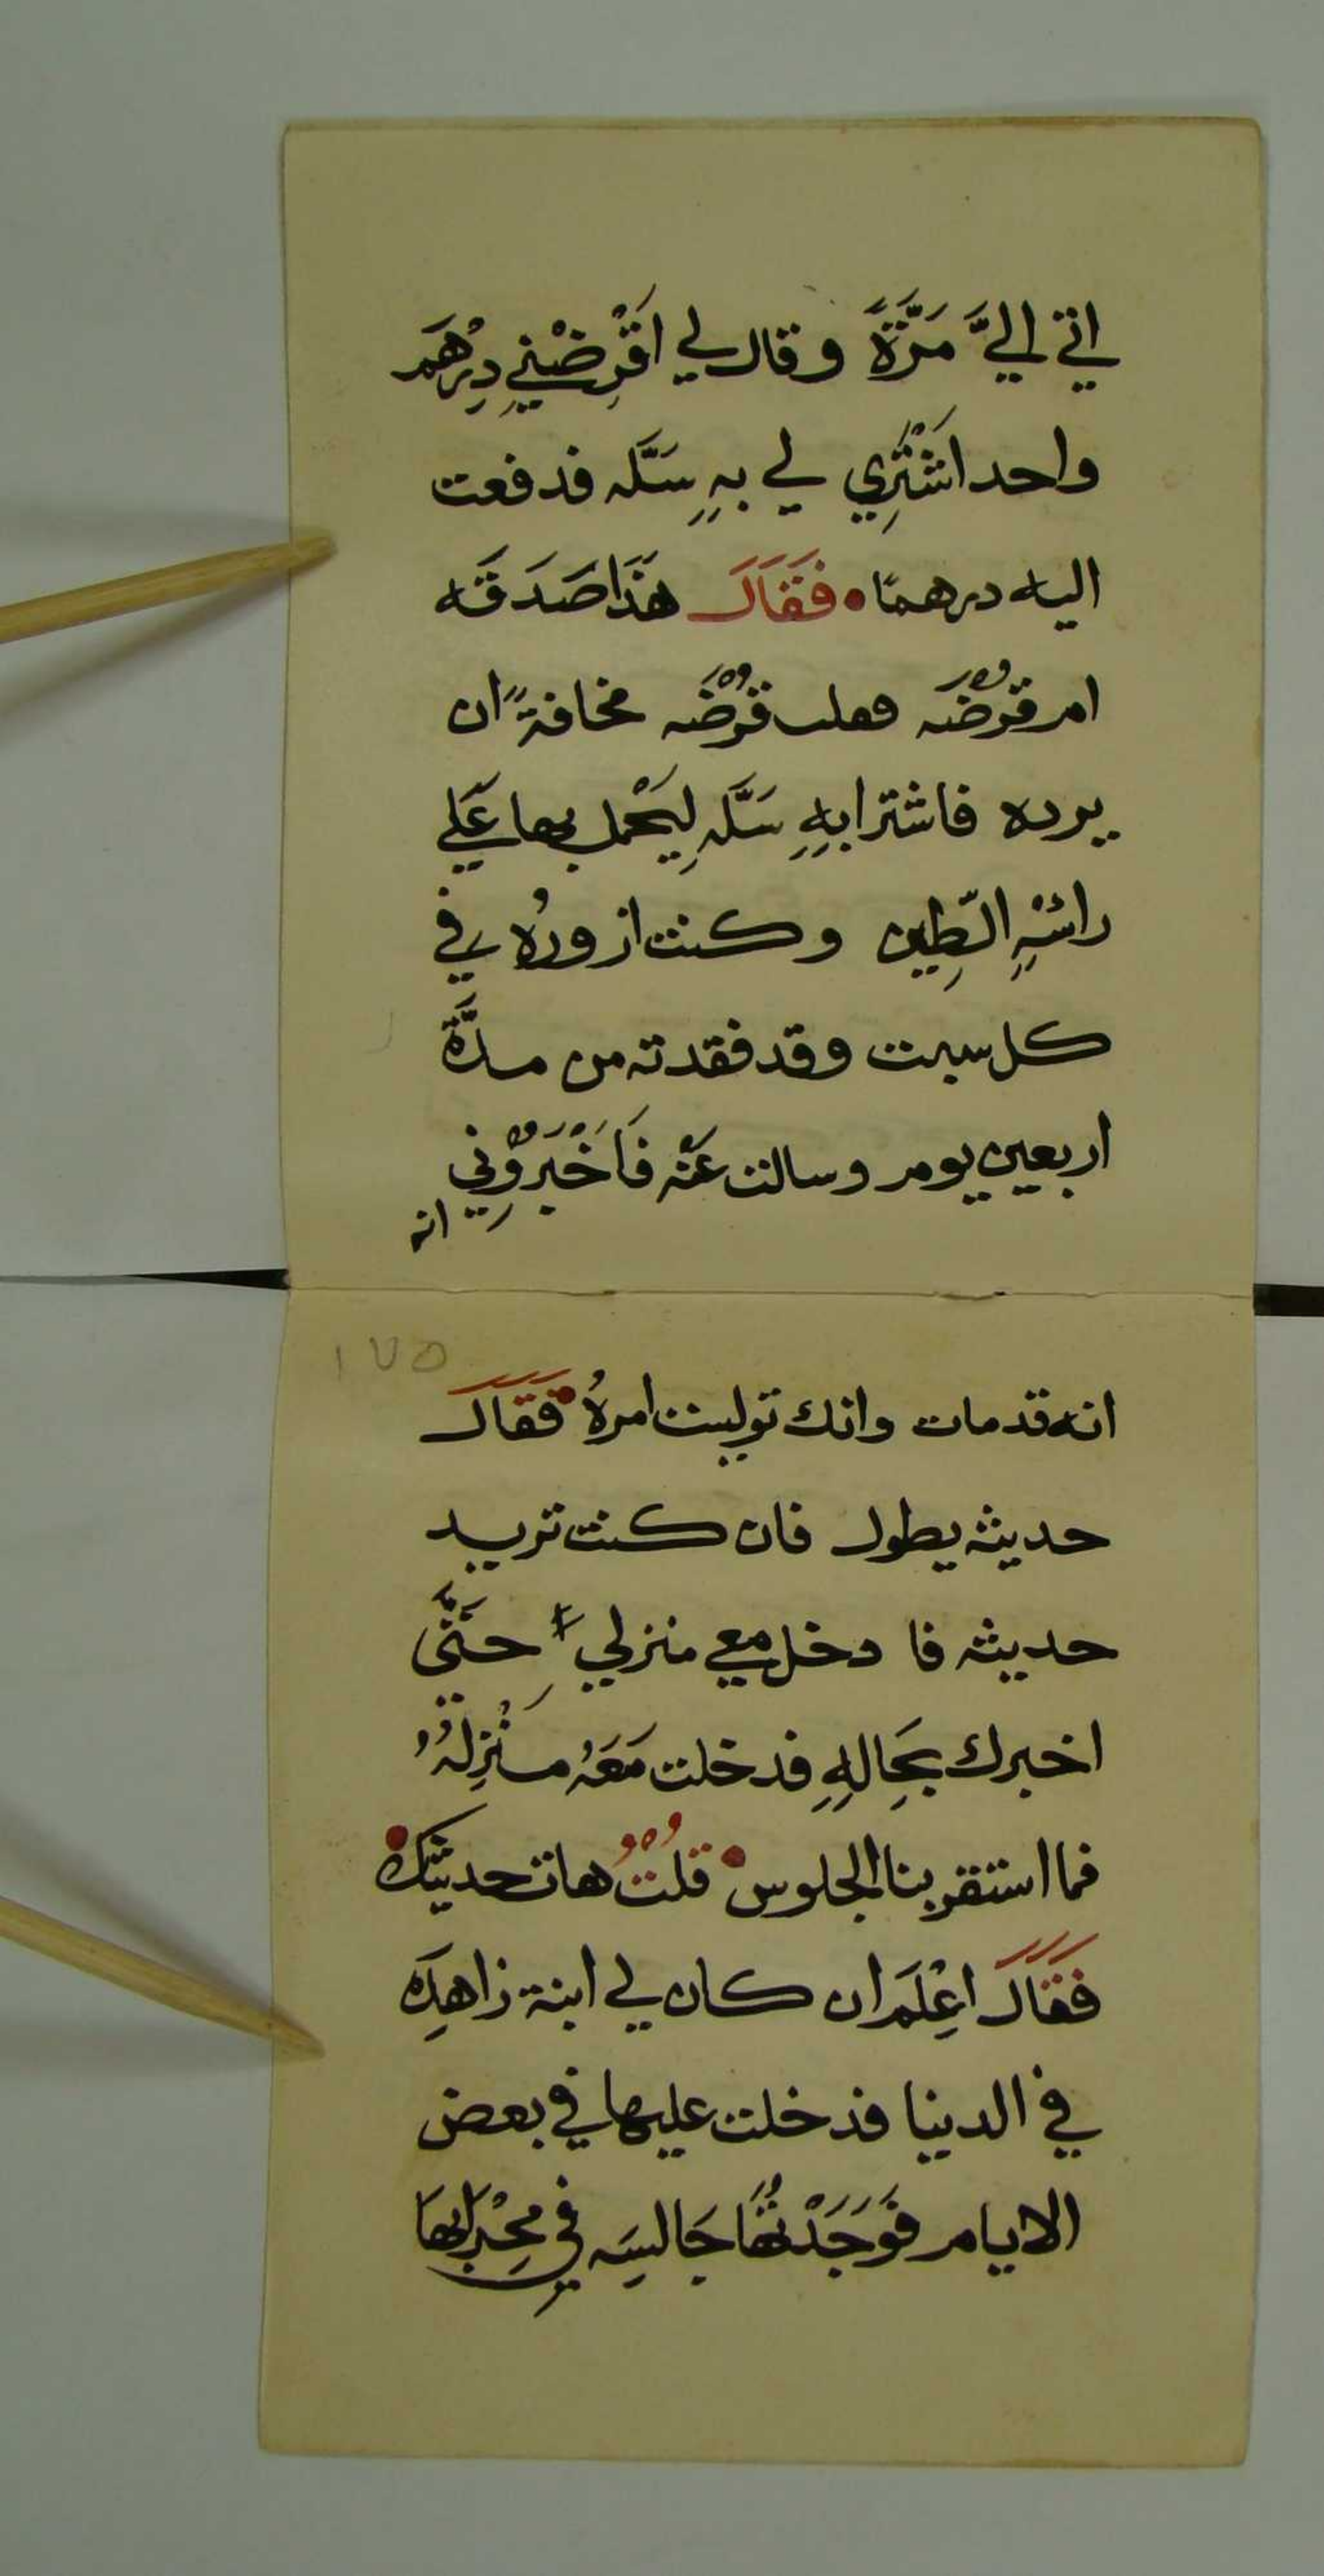 اتي اليَّ مَرَّةً وقال لي اَقْرِضْنِي دِرْهَم
واحد اَشْتَرِي لي بهِ سَلَّه فدفعت
اليه درهمًا • فَقَالَ هَذَا صَدَقَه
ام قرْضَه فقلت قرْضَه مخافةً ان
يرده فاشترا بهِ سَلَّه لِيَحْمل بها عَلي
راسْهِ الطِين وكنت ازورُه في
كل سبت وقد فقدته من مدَّة
اربعين يوم وسالت عَنْه فَاَخْبَروْنِي
انه
١٧٥
انه قد مات وانك توليت امرهُ • فَقَالَ
حديثه يطول فان كنت تريد
حديثه فا دخل معي منزلي حَتَّى
اخبرك بحَالِهِ فدخلت مَعَهُ مَنْزِلهُ
فما استقر بنا الجلوس • قلتُ هات حديثك •
فَقَالَ اعْلَم ان كان لي ابنة زاهِدَه
في الدينا فدخلت عليها في بعض
الايام فَوَجَدْتُهَا جَالسَه في مِحْرَابها